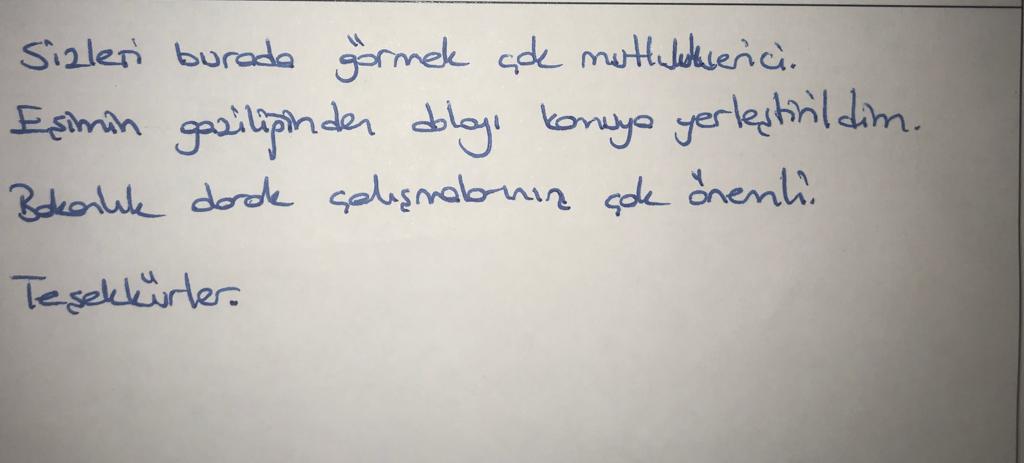 Sizleri burada görmek çok mutlulukverici.
Eşimin gaziliğinden dolayı konuya yerleştirildim.
Bakanlık olarak çalışmalarınız çok önemli.
Teşekkürler.